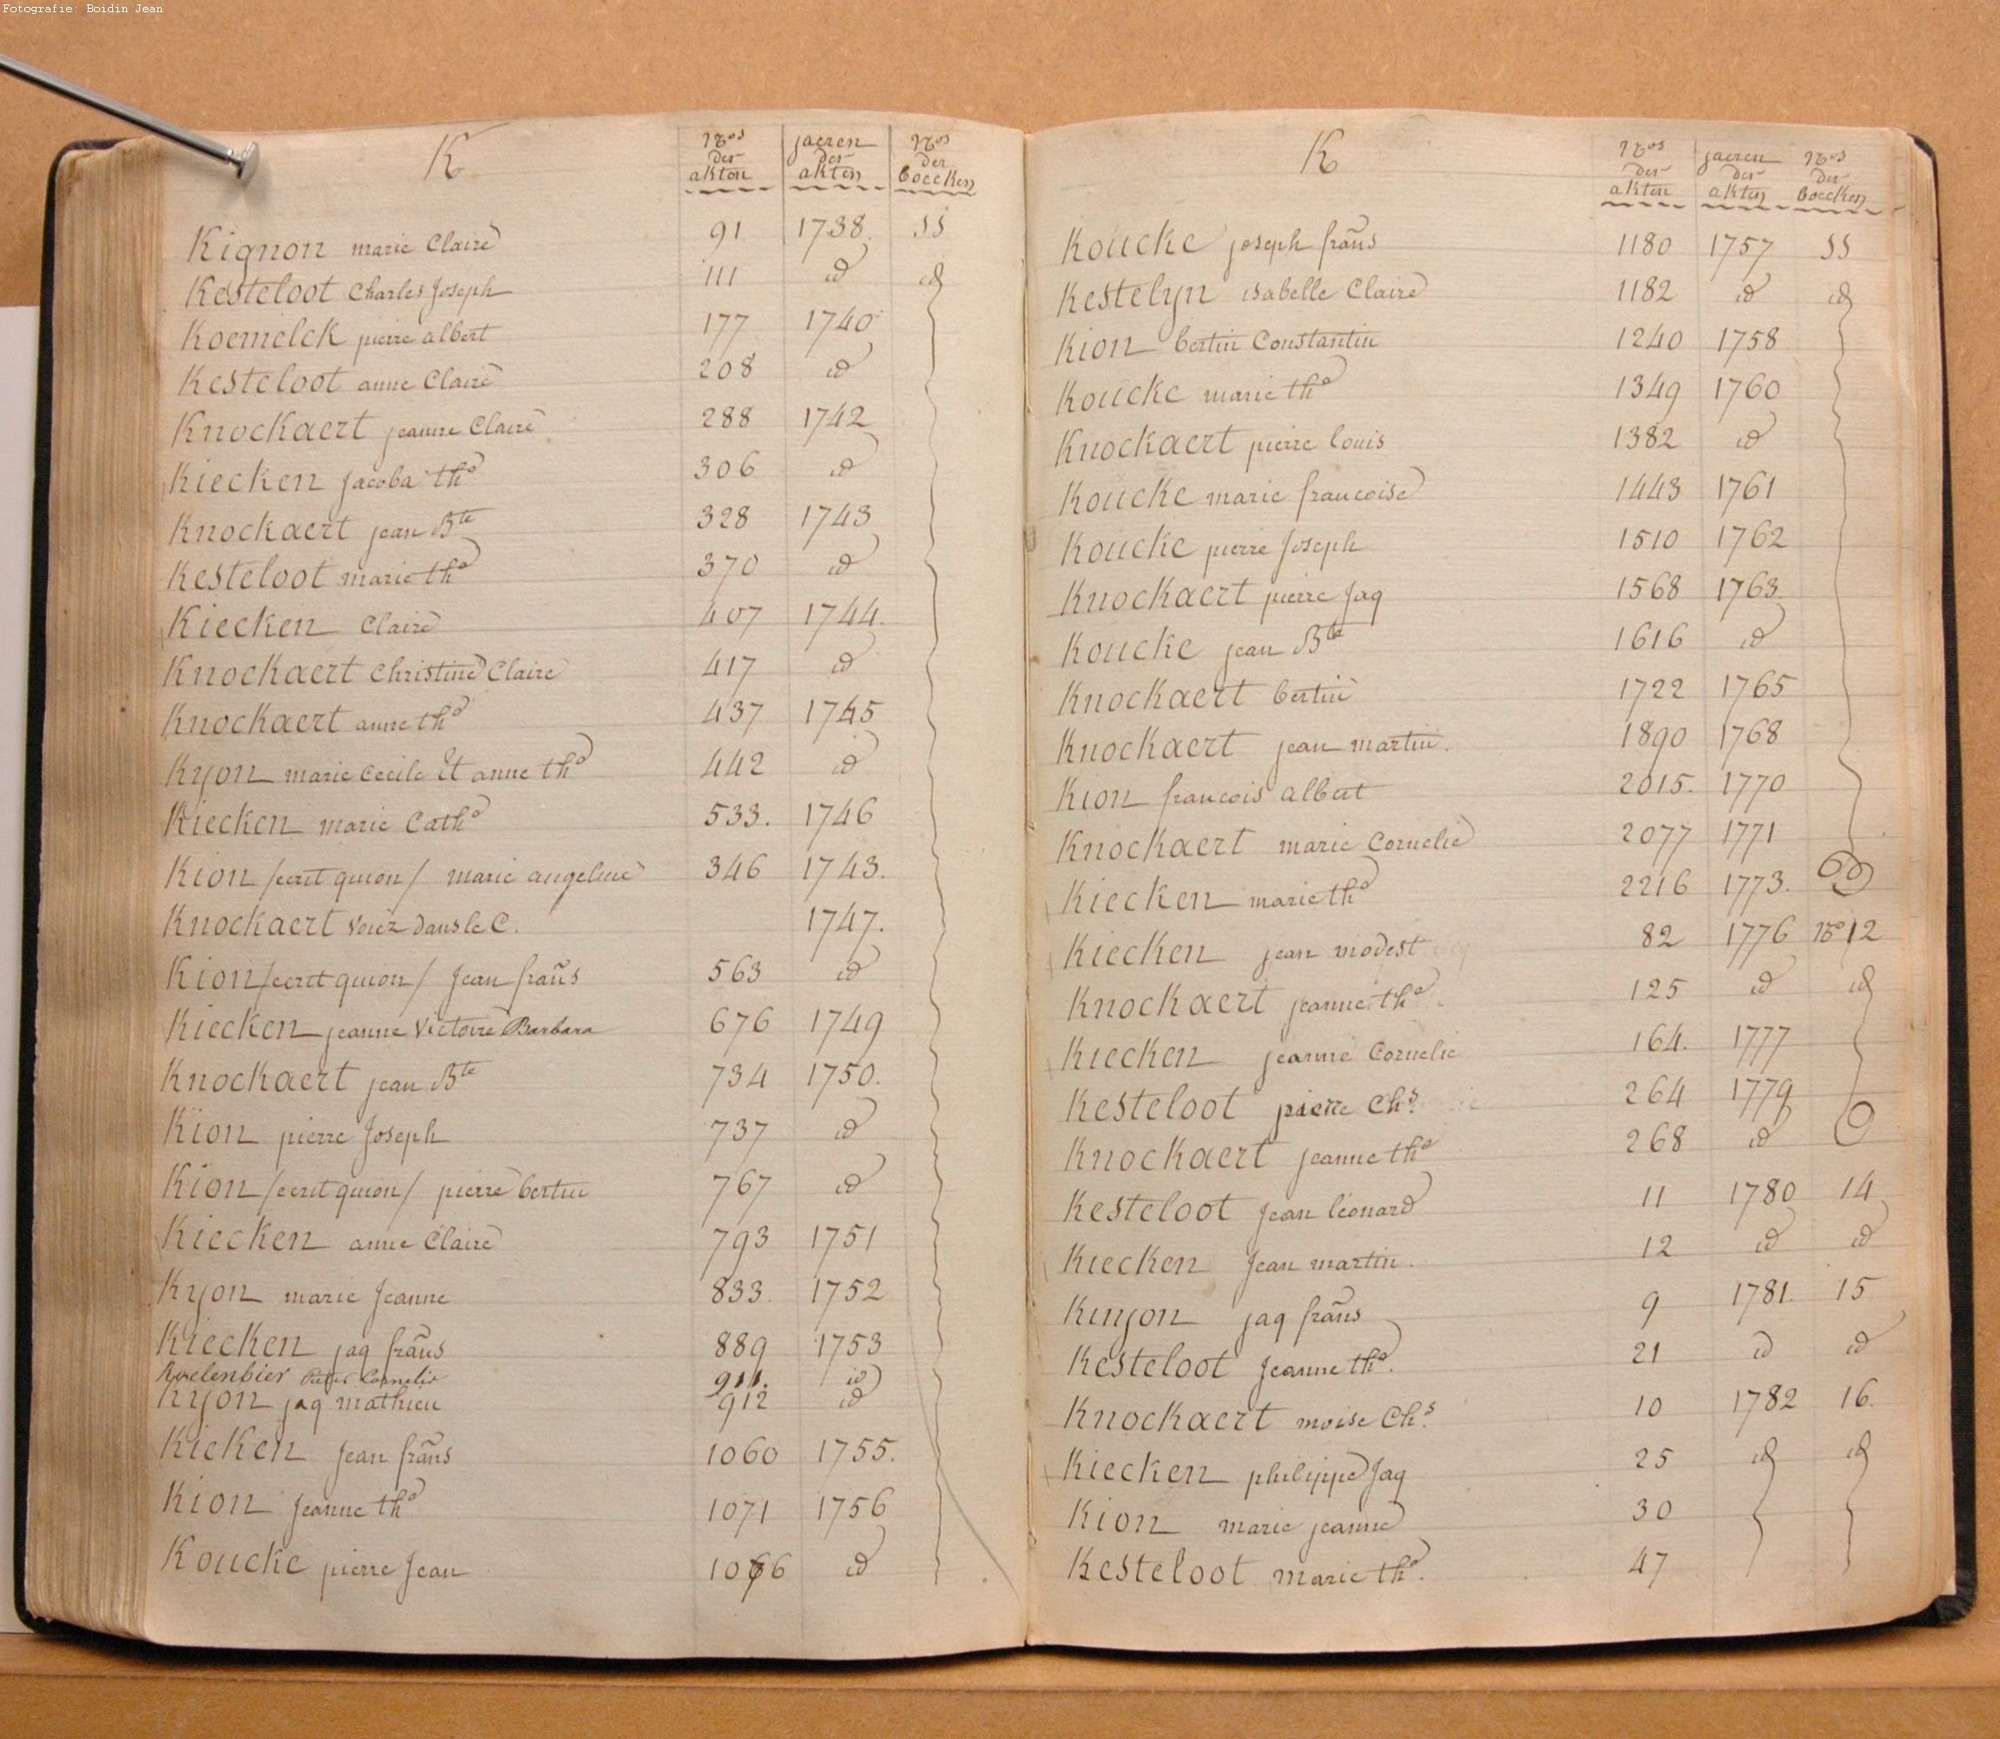 Fotografie: Boidin Jean
K
Nos der akten
jaeren der akten
Nos der boecken
Kignon marie Claire 91 1738. SS
Kesteloot Charles Joseph 111 id id
Koemelck pierre albert 177 1740
Kesteloot anne Claire 208 id
Knockaert jeanne Claire 288 1742
Kiecken Jacoba tho 306 id
Knockaert jean Bte 328 1743
Kesteloot marie tho 370 id
Kiecken Claire 407 1744.
Knockaert Christine Claire 417 id
Knockaert anne tho 437 1745
Kyon marie Cecile Et anne tho 442 id
Kiecken marie Catho 533. 1746
Kion /ecrit quion/ marie angeline 346 1743.
Knockaert Voiez Dans le C. 1747.
Kion /ecrit quion/ Jean frañs 563 id
Kiecken jeanne Victoire Barbara 676 1749
Knockaert jean Bte 734 1750.
Kion pierre Joseph 737 id
Kion /ecrit quion/ pierre bertin 767 id
Kiecken anne Claire 793 1751
Kyon marie Jeanne 833. 1752
Kiecken jaq frañs 889 1753
Roelenbier Pieter Cornelis 911. id
Kyon jaq mathieu 912 id
Kieken Jean frañs 1060 1755.
Kion Jeanne tho 1071 1756
Koucke pierre Jean id
K
Nos der akten
jaeren der akten
Nos der boecken
Koucke joseph frañs 1180 1757 SS
Kestelyn isabelle Claire 1182 id id
Kion bertin Constantin 1240 1758
Koucke marie tho 1349 1760
Knockaert pierre louis 1382 id
Koucke marie francoise 1443 1761
Koucke pierre Joseph 1510 1762
Knockaert pierre Jaq 1568 1763.
Koucke jean Bte 1616 id
Knockaert bertin 1722 1765
Knockaert jean martin. 1890 1768
Kion francois albert 2015. 1770
Knockaert marie Cornelie 2077 1771
Kiecken marie tho 2216 1773.
Kiecken jean modest 82 1776 No 12
Knockaert jeanne tho. 125 id id
Kiecken jeanne Cornelie 164. 1777
Kesteloot pierre Chs. 264 1779
Knockaert jeanne tho 268 id
Kesteloot Jean léonard 11 1780 14
Kiecken Jean martin. 12 id id
Kinyon jaq frañs 9 1781. 15
Kesteloot Jeanne tho. 21 id id
Knockaert moise Chs. 10 1782 16.
Kiecken philippe Jaq 25 id id
Kion marie jeanne 30
Kesteloot marie tho. 47